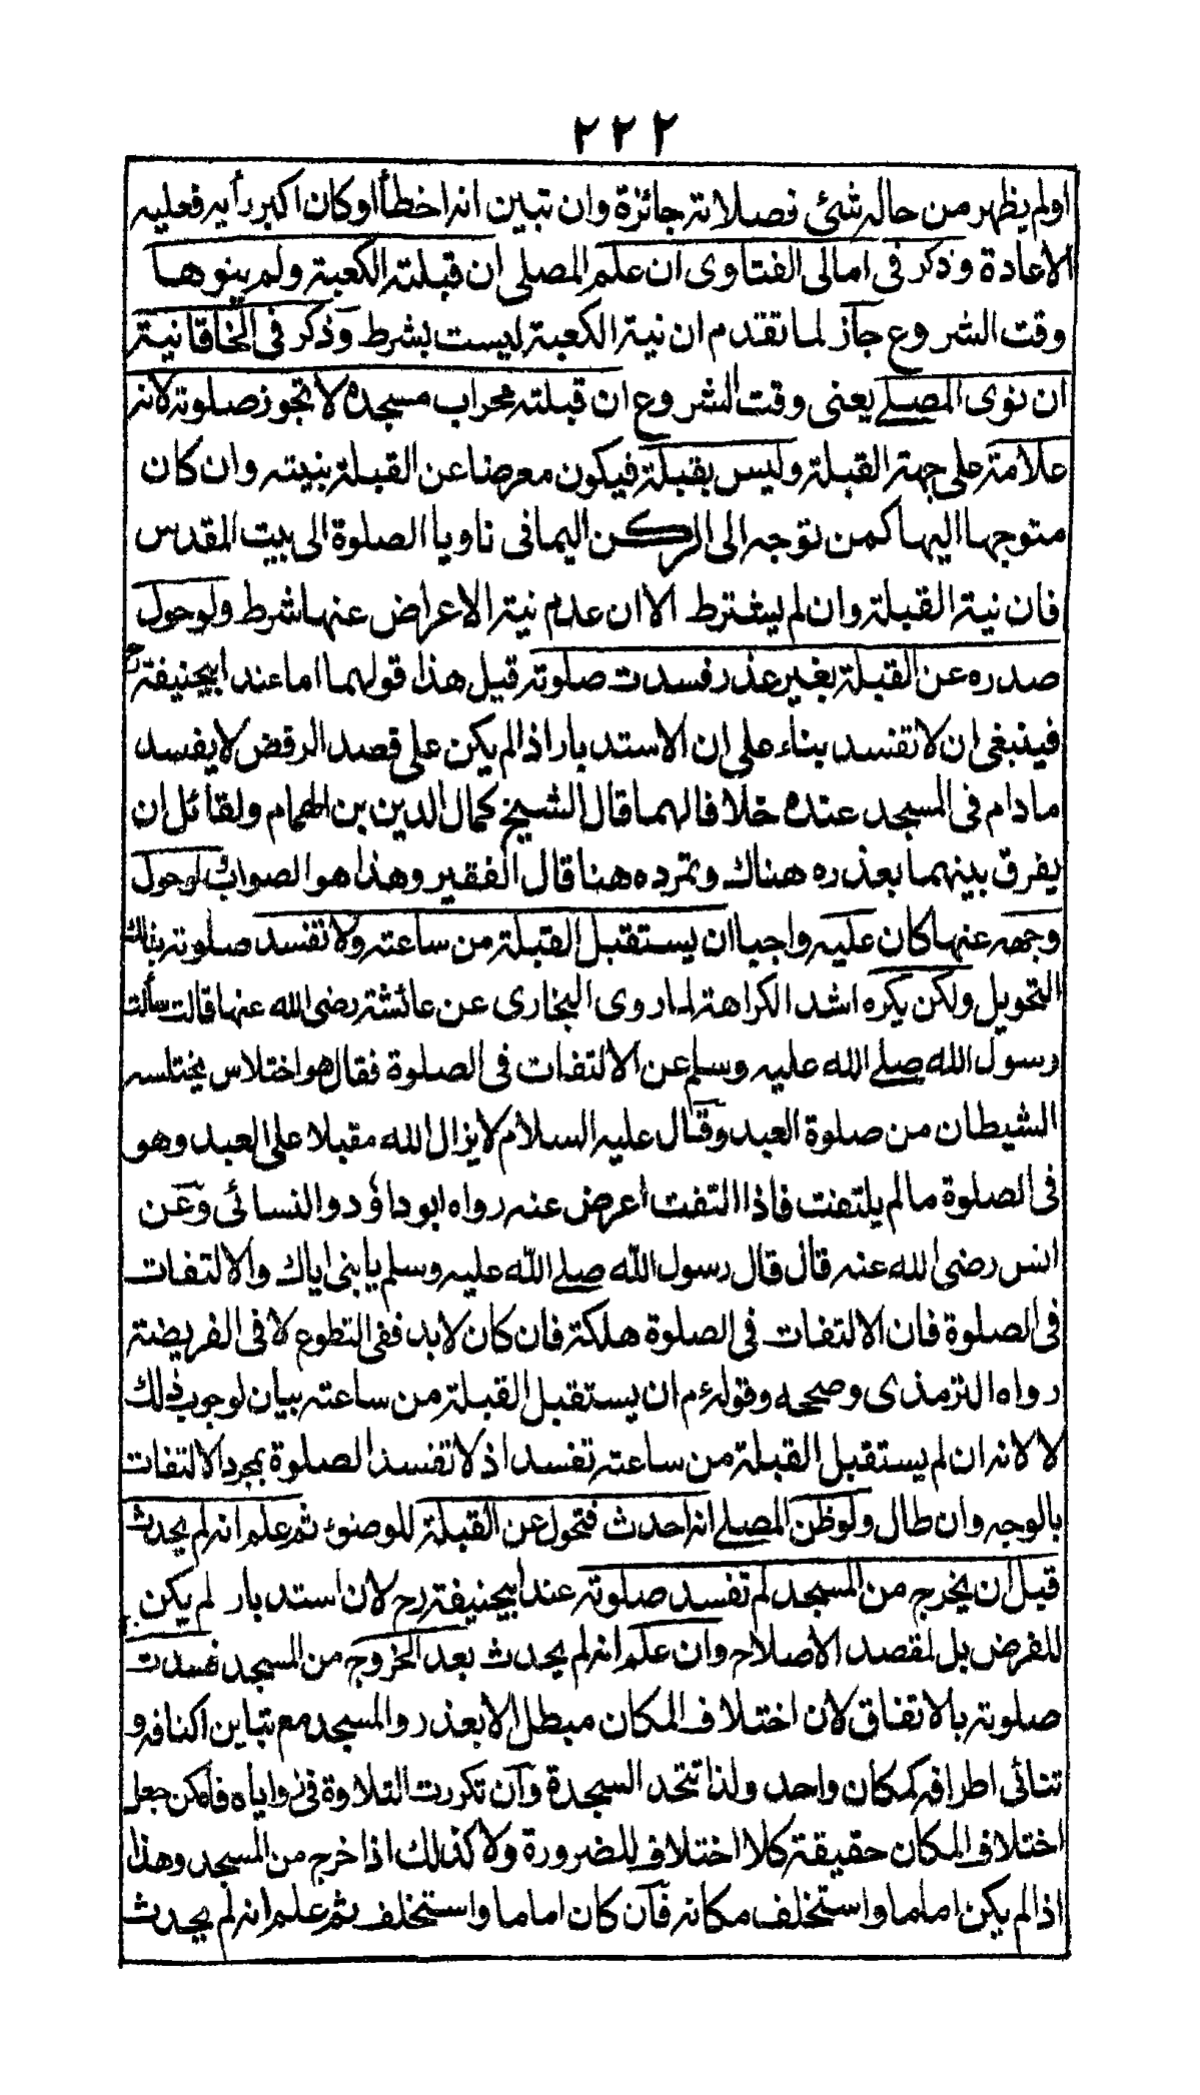 ٢٢٢
اولم يظهر من حاله شئ فصلاته جائزة وان تبين انه اخطأ او كان اكبر رأيه فعليه
الاعادة وذكر فى امالى الفتاوى ان علم المصلى ان قبلته الكعبة ولم ينوها
وقت الشروع جاز لما تقدم ان نية الكعبة ليست بشرط وذكر فى الخاقانية
ان نوى المصلے يعنى وقت الشروع ان قبلته محراب مسجده لا تجوز صلوته لانه
علامة على جهة القبلة وليس بقبلة فيكون معرضا عن القبلة بنيته وان كان
متوجها اليها كمن توجه الى الركن اليمانى ناويا الصلوة الى بيت المقدس
فان نية القبلة وان لم يشترط الا ان عدم نية الاعراض عنها شرط ولو حول
صدره عن القبلة بغير عذر فسدت صلوته قيل هذا قولهما اما عند ابيحنيفة رح
فينبغى ان لا تفسد بناء على ان الاستدبار اذا لم يكن على قصد الرفض لا يفسد
ما دام فى المسجد عنده خلافا لهما قال الشيخ كمال الدين بن الهمام ولقائل ان
يفرق بينهما بعذره هناك وتمرده هنا قال الفقير وهذا هو الصواب لو حول
وجهه عنها كان عليه واجبا ان يستقبل القبلة من ساعته ولا تفسد صلوته بذلك
التحويل ولكن يكره اشد الكراهة لما روى البخارى عن عائشة رضى الله عنها قالت سألت
رسول الله صلے الله عليه وسلم عن الالتفات فى الصلوة فقال هو اختلاس يختلسه
الشيطان من صلوة العبد وقال عليه السلام لا يزال الله مقبلا على العبد وهو
فى الصلوة ما لم يلتفت فاذا التفت اعرض عنه رواه ابو داؤد والنسائى وعن
انس رضى الله عنه قال قال رسول الله صلے الله عليه وسلم يا بنى اياك والالتفات
فى الصلوة فان الالتفات فى الصلوة هلكة فان كان لابد ففى التطوع لا فى الفريضة
رواه الترمذى وصححه وقوله م ان يستقبل القبلة من ساعته بيان لوجوب ذلك
لا لانه ان لم يستقبل القبلة من ساعته تفسد اذ لا تفسد الصلوة بمجرد الالتفات
بالوجه وان طال ولو ظن المصلے انه احدث فتحول عن القبلة للوضوء ثم علم انه لم يحدث
قبل ان يخرج من المسجد لم تفسد صلوته عند ابيحنيفة رح لان استدبار لم يكن
للفرض بل لقصد الاصلاح وان علم انه لم يحدث بعد الخروج من المسجد فسدت
صلوته بالاتفاق لان اختلاف المكان مبطل الا بعذر والمسجد مع تباين اكنافه و
تنائى اطرافه كمكان واحد ولذا تتحد السجدة وان تكررت التلاوة فى زواياه فامكن جعل
اختلاف المكان حقيقة كلا اختلاف للضرورة ولا كذلك اذا خرج من المسجد وهذا
اذا لم يكن اماما واستخلف مكانه فان كان اماما واستخلف ثم علم انه لم يحدث